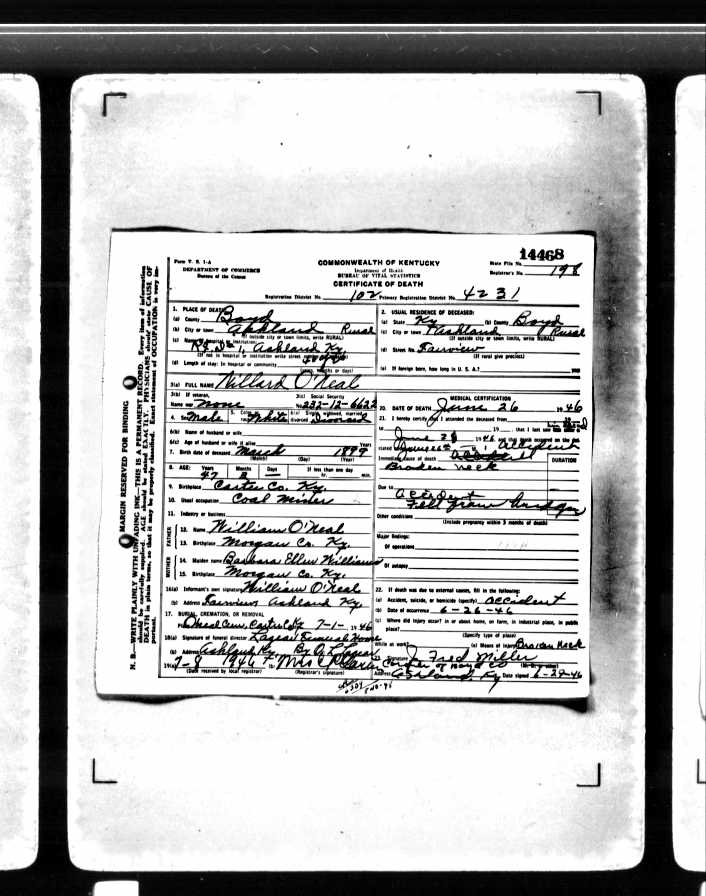 14468
Form V. S. 1-A
COMMONWEALTH OF KENTUCKY
State File No.
DEPARTMENT OF COMMERCE
Department of Health
Registrar's No. 198
Bureau of the Census
BUREAU OF VITAL STATISTICS
CERTIFICATE OF DEATH
Registration District No. 102 Primary Registration District No. 4231
N. B.—WRITE PLAINLY WITH UNFADING INK—THIS IS A PERMANENT RECORD. Every item of information
should be carefully supplied. AGE should be stated EXACTLY. PHYSICIANS should state CAUSE OF
DEATH in plain terms, so that it may be properly classified. Exact statement of OCCUPATION is very im-
portant.
MARGIN RESERVED FOR BINDING
1. PLACE OF DEATH
(a) County Boyd
(b) City or town Ashland Rural
(If outside city or town limits, write RURAL)
(c) Name of hospital or institution:
R.F.D. # 1, Ashland Ky.
(If not in hospital or institution write street
(d) Length of stay: In hospital or community
(years, months or days)
2. USUAL RESIDENCE OF DECEASED:
(a) State Ky (b) County Boyd
(c) City or town Ashland Rural
(If outside city or town limits, write RURAL)
(d) Street No. Fairview
(If rural give precinct)
(e) If foreign born, how long in U. S. A.? years
3(a) FULL NAME Willard O'Neal
3(b) If veteran,
Name war none
3(c) Social Security
No. 232-12-6622
4. Sex Male 5. Color White 6(a) Single, widowed, married, divorced Divorced
6(b) Name of husband or wife
6(c) Age of husband or wife if alive Years
7. Birth date of deceased March 1899
(Month) (Day) (Year)
8. AGE: Years Months Days If less than one day
47 hr. min.
9. Birthplace Carter Co. Ky.
10. Usual occupation Coal Miner
11. Industry or business
FATHER
12. Name William O'Neal
13. Birthplace Morgan Co. Ky.
MOTHER
14. Maiden name Barbara Ellen Williams
15. Birthplace Morgan Co. Ky.
16(a) Informant's own signature William O'Neal
(b) Address Fairview, Ashland Ky.
17. BURIAL, CREMATION, OR REMOVAL
O'Neal Cem., Carter Co Ky 7-1-1946
18(a) Signature of funeral director Lazear Funeral Home
(b) Address Ashland, Ky. By
19(a) 7-8 1946 (b)
(Date received by local registrar) (Registrar's signature)
MEDICAL CERTIFICATION
20. DATE OF DEATH June 26 1946
21. I hereby certify that I attended the deceased from
19 , that I last saw
June 1946
Immediate cause of death
DURATION
Broken neck
Due to
accident
Fell from bridge
Other conditions
(Include pregnancy within 3 months of death)
Major findings:
Of operations
Of autopsy
22. If death was due to external causes, fill in the following:
(a) Accident, suicide, or homicide (specify) accident
(b) Date of occurrence 6-26-46
(c) Where did injury occur? In or about home, on farm, in industrial place, in public
place?
(Specify type of place)
While at work? (e) Means of Injury Broken Neck
23. Signature J. Fred Miller
Coroner of Boyd Co
Address Ashland, Ky Date signed 6-29-46